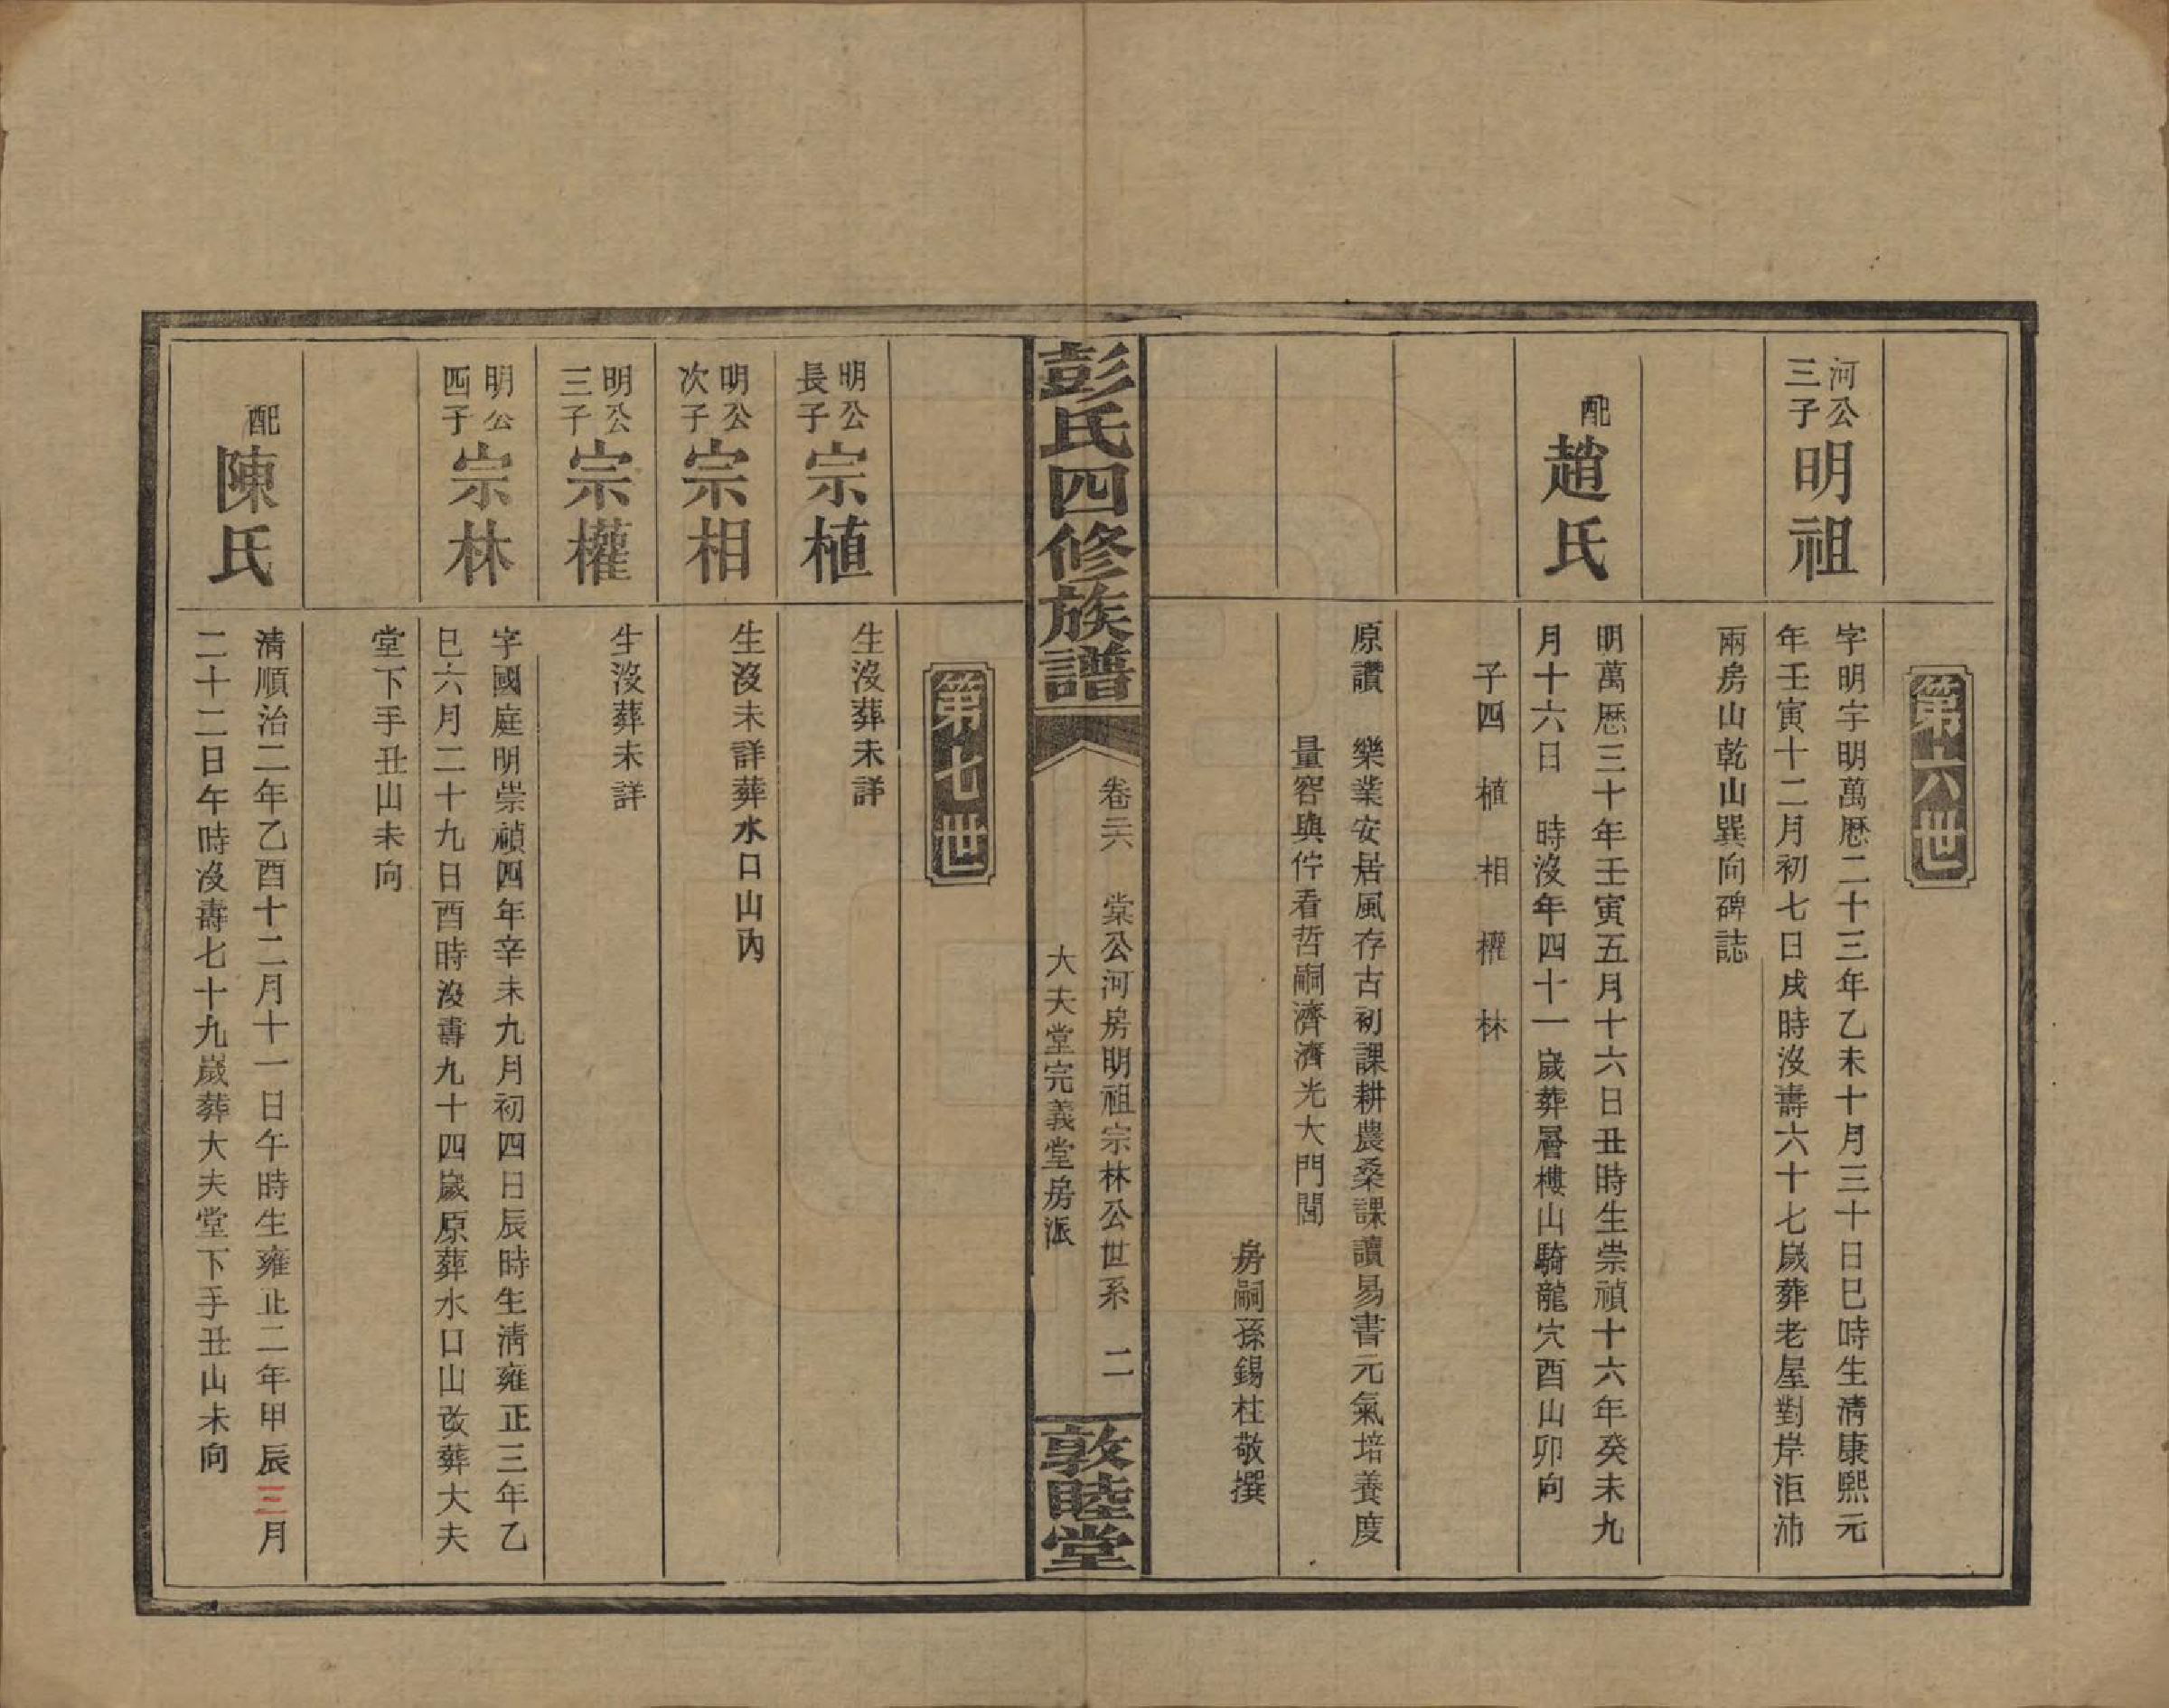 第六世
河公
三子
明祖
字明宇明萬厯二十三年乙未十月三十日巳時生清康熙元
年壬寅十二月初七日戌時沒壽六十七嵗葬老屋對岸洰沛
兩房山乾山巽向碑誌
配
趙氏
明萬厯三十年壬寅五月十六日丑時生崇禎十六年癸未九
月十六日 時沒年四十一嵗葬層樓山騎龍穴酉山卯向
子四 植 相 權 林
原讚 樂業安居風存古初課耕農桑課讀易書元氣培養度
量容與佇看哲嗣濟濟光大門閭
房嗣孫錫柱敬撰
彭氏四修族譜
卷二六 棠公河房明祖宗林公世系 二
大夫堂完義堂房派
敦睦堂
第七世
明公
長子
宗植
生沒葬未詳
明公
次子
宗相
生沒未詳葬水口山內
明公
三子
宗權
生沒葬未詳
明公
四子
宗林
字國庭明崇禎四年辛未九月初四日辰時生清雍正三年乙
巳六月二十九日酉時沒壽九十四嵗原葬水口山改葬大夫
堂下手丑山未向
配
陳氏
清順治二年乙酉十二月十一日午時生雍正二年甲辰三月
二十二日午時沒壽七十九嵗葬大夫堂下手丑山未向